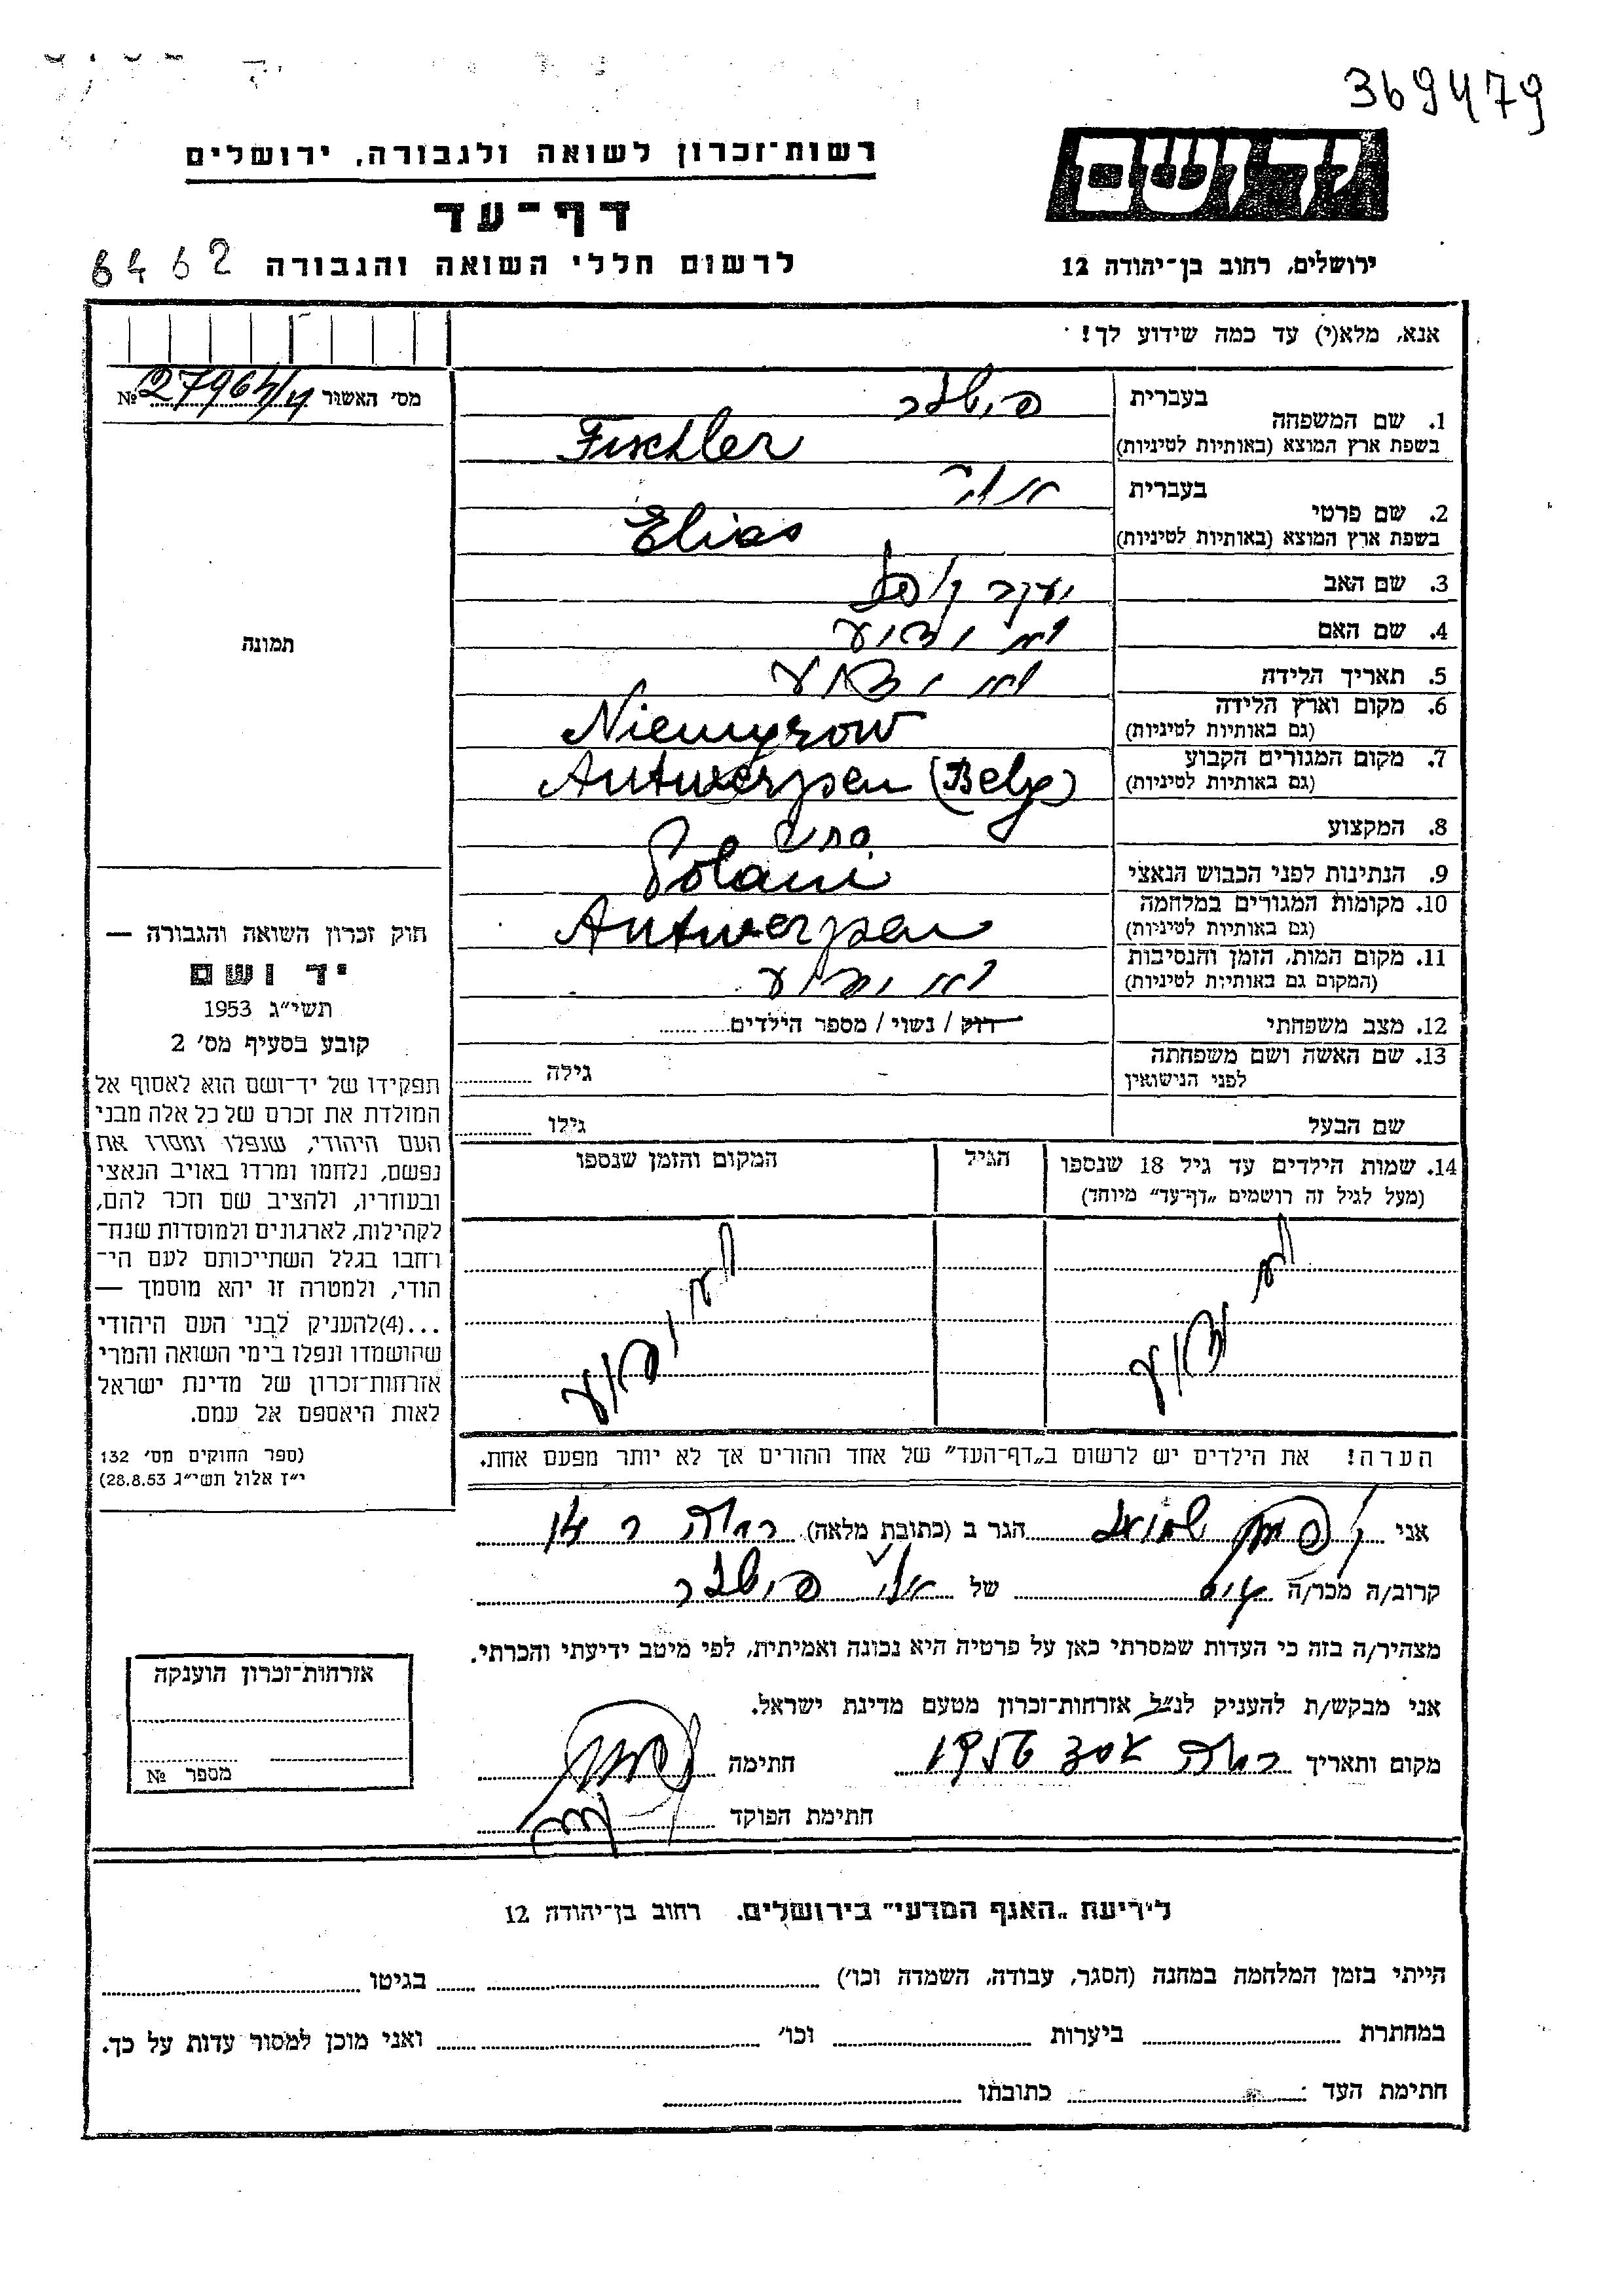 369479
יד ושם
רשות־זכרון לשואה ולגבורה, ירושלים
דף־עד
לרשום חללי השואה והגבורה 6462
ירושלים, רחוב בן־יהודה 12
אנא, מלא(י) עד כמה שידוע לך!
מס׳ האשור № 27964/4
1. שם המשפחה
בעברית פישלר
בשפת ארץ המוצא (באותיות לטיניות) Fischler
2. שם פרטי
בעברית
בשפת ארץ המוצא (באותיות לטיניות) Elias
3. שם האב יעקב קופל
4. שם האם לא ידוע
5. תאריך הלידה לא ידוע
6. מקום וארץ הלידה
(גם באותיות לטיניות) Niemyrow
7. מקום המגורים הקבוע
(גם באותיות לטיניות) Antwerpen (Belg)
8. המקצוע
9. הנתינות לפני הכבוש הנאצי
10. מקומות המגורים במלחמה
(גם באותיות לטיניות) Antwerpen
11. מקום המות, הזמן והנסיבות
(המקום גם באותיות לטיניות) לא ידוע
12. מצב משפחתי רווק / נשוי / מספר הילדים
13. שם האשה ושם משפחתה
לפני הנישואין
גילה
שם הבעל
גילו
14. שמות הילדים עד גיל 18 שנספו
(מעל לגיל זה רושמים „דף־עד״ מיוחד)
הגיל
המקום והזמן שנספו
לא ידוע
לא ידוע
הערה! את הילדים יש לרשום ב„דף־העד״ של אחד ההורים אך לא יותר מפעם אחת.
תמונה
חוק זכרון השואה והגבורה —
יד ושם
תשי״ג 1953
קובע בסעיף מס׳ 2
תפקידו של יד־ושם הוא לאסוף אל
המולדת את זכרם של כל אלה מבני
העם היהודי, שנפלו ומסרו את
נפשם, נלחמו ומרדו באויב הנאצי
ובעוזריו, ולהציב שם וזכר להם,
לקהילות, לארגונים ולמוסדות שנח־
רחבו בגלל השתייכותם לעם הי־
הודי, ולמטרה זו יהא מוסמך —
...(4)להעניק לבני העם היהודי
שהושמדו ונפלו בימי השואה והמרי
אזרחות־זכרון של מדינת ישראל
לאות היאספם אל עמם.
(ספר החוקים מס׳ 132
י״ז אלול תשי״ג 28.8.53)
אני שמואל הגר ב (כתובת מלאה)
קרוב/ה מכר/ה של אלי פישלר
מצהיר/ה בזה כי העדות שמסרתי כאן על פרטיה היא נכונה ואמיתית, לפי מיטב ידיעתי והכרתי.
אני מבקש/ת להעניק לנ״ל אזרחות־זכרון מטעם מדינת ישראל.
מקום ותאריך חתימה
חתימת הפוקד
אזרחות־זכרון הוענקה
מספר №
לידיעת „האגף המדעי״ בירושלים. רחוב בן־יהודה 12
הייתי בזמן המלחמה במחנה (הסגר, עבודה, השמדה וכו׳) בגיטו
במחתרת ביערות וכו׳ ואני מוכן למסור עדות על כך.
חתימת העד כתובתו